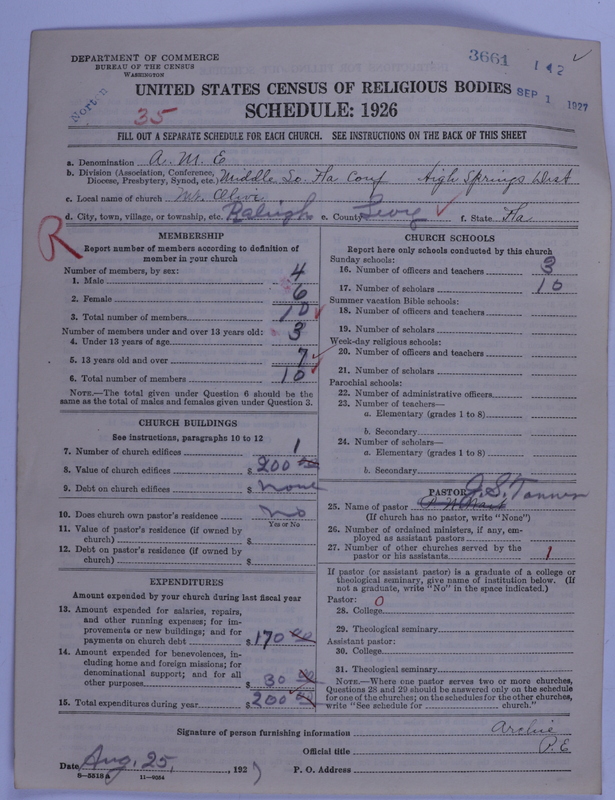 DEPARTMENT OF COMMERCE
BUREAU OF THE CENSUS
WASHINGTON
3661
142
Norton
35
UNITED STATES CENSUS OF RELIGIOUS BODIES
SEP 1 1927
SCHEDULE: 1926
FILL OUT A SEPARATE SCHEDULE FOR EACH CHURCH. SEE INSTRUCTIONS ON THE BACK OF THIS SHEET
a. Denomination A. M. E
b. Division (Association, Conference, Diocese, Presbytery, Synod, etc.) Middle So. Fla Conf High Springs Dist
c. Local name of church Mt. Olive
d. City, town, village, or township, etc. Raleigh e. County Levy f. State Fla
R
MEMBERSHIP
Report number of members according to definition of
member in your church
Number of members, by sex:
1. Male 4
2. Female 6
3. Total number of members 10
Number of members under and over 13 years old:
4. Under 13 years of age 3
5. 13 years old and over 7
6. Total number of members 10
NOTE.—The total given under Question 6 should be
same as the total of males and females given under Question 3.
CHURCH BUILDINGS
See instructions, paragraphs 10 to 12
7. Number of church edifices 1
8. Value of church edifices $ 200 00
9. Debt on church edifices $ none
10. Does church own pastor's residence? no
Yes or No
11. Value of pastor's residence (if owned by
church) $
12. Debt on pastor's residence (if owned by
church) $
EXPENDITURES
Amount expended by your church during last fiscal year
13. Amount expended for salaries, repairs,
and other running expenses; for im-
provements or new buildings; and for
payments on church debt $ 170 00
14. Amount expended for benevolences, in-
cluding home and foreign missions; for
denominational support; and for all
other purposes $ 30 00
15. Total expenditures during year $ 200 00
CHURCH SCHOOLS
Report here only schools conducted by this church
Sunday schools:
16. Number of officers and teachers 3
17. Number of scholars 10
Summer vacation Bible schools:
18. Number of officers and teachers
19. Number of scholars
Week-day religious schools:
20. Number of officers and teachers
21. Number of scholars
Parochial schools:
22. Number of administrative officers
23. Number of teachers—
a. Elementary (grades 1 to 8)
b. Secondary
24. Number of scholars—
a. Elementary (grades 1 to 8)
b. Secondary
PASTOR J. S. Tanner
25. Name of pastor
(If church has no pastor, write "None")
26. Number of ordained ministers, if any, em-
ployed as assistant pastors
27. Number of other churches served by the
pastor or his assistants 1
If pastor (or assistant pastor) is a graduate of a college or
theological seminary, give name of institution below. (If
not a graduate, write "No" in the space indicated.)
Pastor: 0
28. College
29. Theological seminary
Assistant pastor:
30. College
31. Theological seminary
NOTE.—Where one pastor serves two or more churches,
Questions 28 and 29 should be answered only on the schedule
for one of the churches; on the schedules for the other churches,
write "See schedule for church."
Signature of person furnishing information Archie
Official title P. E
Date Aug. 25, , 1927 P. O. Address
8-5518a 11-9054